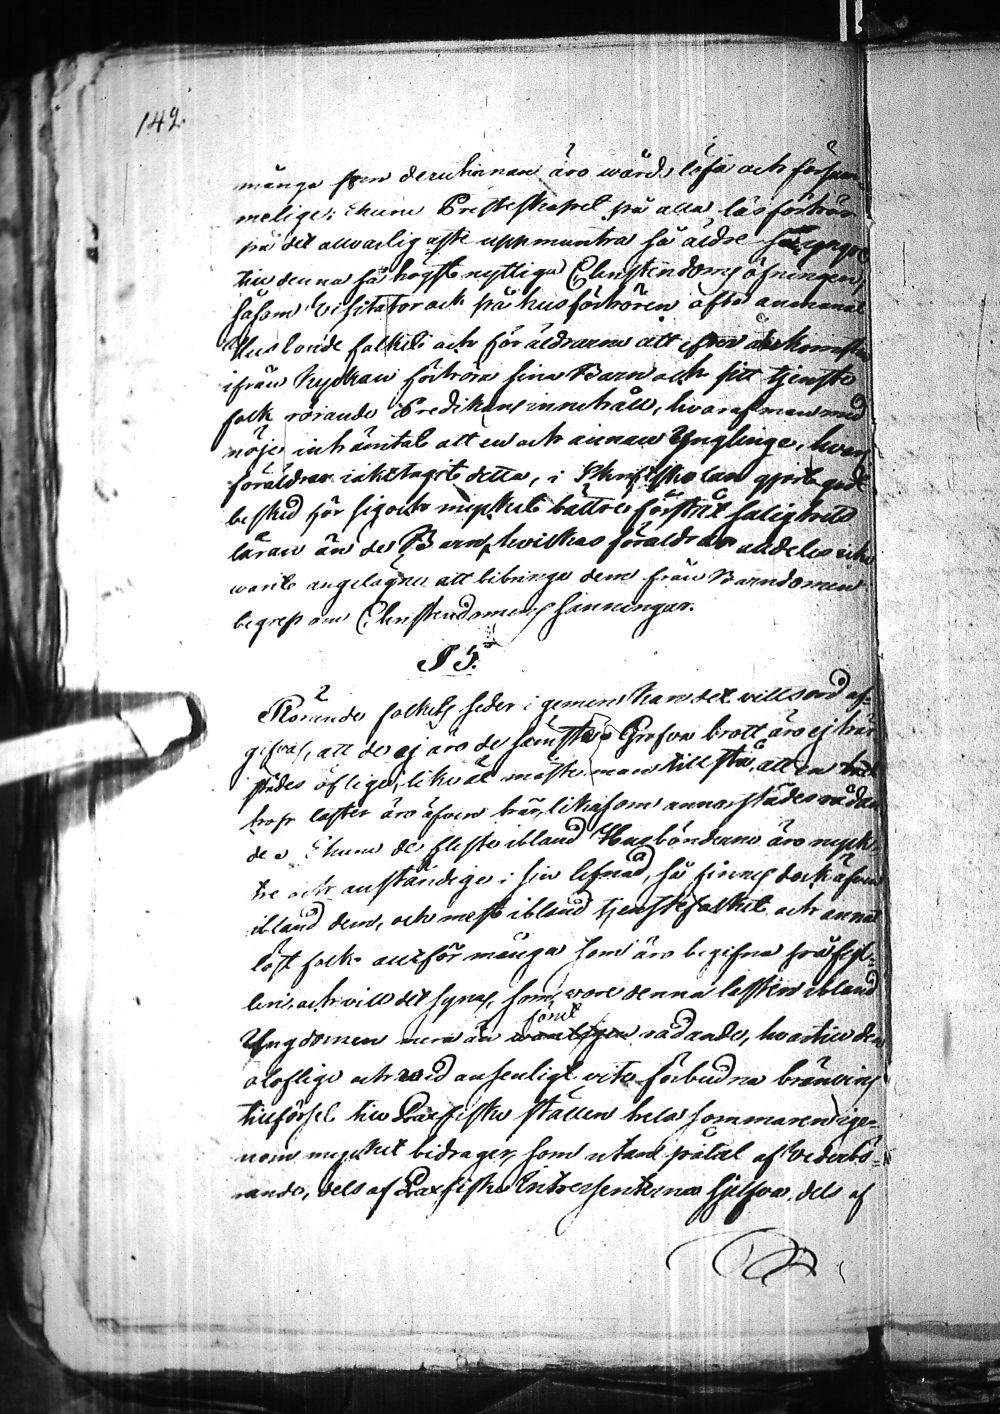 142.
många som deruthinnan äro wårdslösa och försum-
melige; skum Presterskapet på alla läsförhör
på det allvarligaste uppmuntra så äldre så yngre
till denna så högst nyttiga Christendoms öfningen,
såsom Visitator ock på husförhören ofta anmanat
Husbonde folket och föräldrarna att efter återkomsten
ifrån Kyrkan förhöra sina Barn och sitt tjenste
folk rörande Predikans innehåll, hvaraf man med
nöje inhämtat att en och annan Ynglinge, hvars
föräldrar iakttagit detta, i Skriftskolan gjort godt
besked för sig och mycket bättre förstått salighets
läran än de Barn, hvilkas föräldrar aldeles icke
warit angelägne att bibringa dem från Barndomen
begrep om Christendomens sanningar.
§ 5.
Rörande folkets seder i gemen kan det vittsord af-
gifvas, att de ej äro de sämste. Grofva brott äro ej här
städes öflige, likväl måste man tillstå, att en
hop laster äro äfven här, likasom annorstädes rådan
de. Ehuru de fleste ibland Husbönderne äro nykt-
re och anständige i sin lefnad, så finnes dock äfven
ibland dem, och mest ibland tjenstefolket och annat
löst folk allt för många som äro begifna på fyl-
leri, och vill det synas, som vore denna lasten ibland
Yngdomen mera än förut rådande, hvartill den
oloflige och wid ansenligt vite förbudna bränvins
tillförsel till Laxfiske ställen hela sommaren ige-
nom mycket bidrager, som utan påtal af Vederbö-
rande, dels af Laxfiske Intressenterna sjelfva, dels af